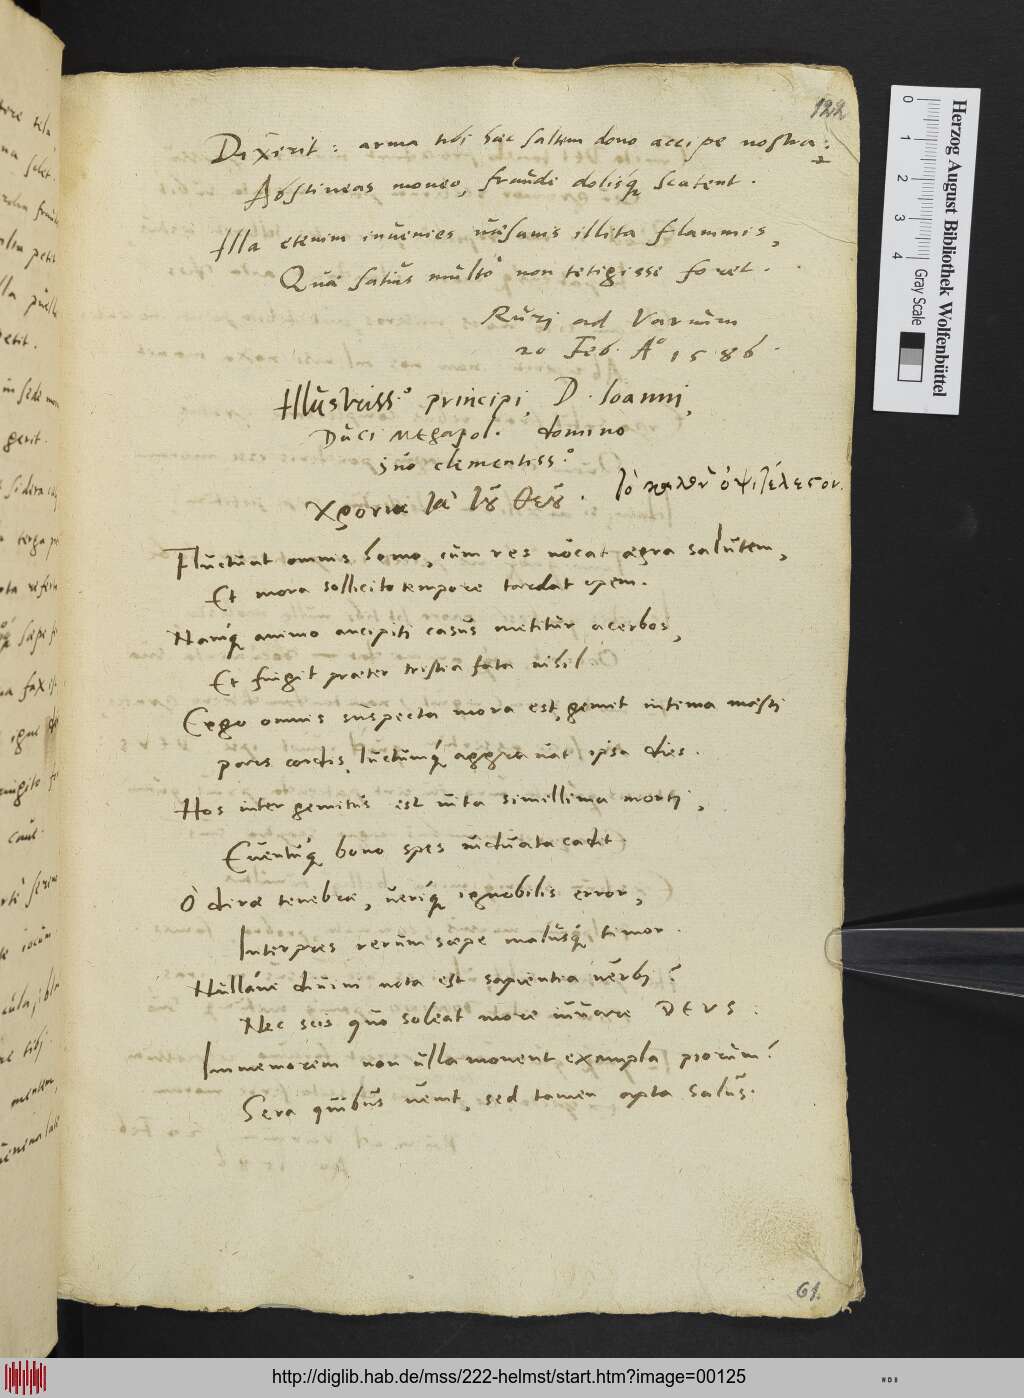 122
Dixerit: arma tibi haec saltem dono accipe nostra:
Abstineas moneo, fraude dolisq́ scatent.
Illa etenim invenies insanis illita flammis,
Quae satius multo non tetigisse foret.
Ruri ad Varnum
20 Feb. Aº 1586.
Illustriss.º principi, D. Ioanni,
Duci Megapol. domino
suo clementiss.º
Χρονια τα τȣ θεȣ. το καλον ὀψιτέλεστον.
Fluctuat omnis homo, cum res vocat aegra salutem,
Et mora sollicito tempore tardat opem.
Namq́ animo ancipiti casus metitur acerbos,
Et fingit praeter tristia fata nihil
Ergo omnis suspecta mora est, gemit intima maesti
pars cordis, luctumq́ aggravat ipsa dies.
Hos inter gemitus est vita simillima morti,
Eventuq́ bono spes viduata cadit.
O dirae tenebrae, veriq́ ignobilis error,
Interpres rerum saepe malusq́ timor.
Nulláne divini nota est sapientia verbi?
Nec scis quo soleat more iuvare DEVS.
Immemorem non ulla movent exempla piorum?
Sera quibus venit, sed tamen apta salus.
61.
Herzog August Bibliothek Wolfenbüttel
0 1 2 3 4
Gray Scale
http://diglib.hab.de/mss/222-helmst/start.htm?image=00125